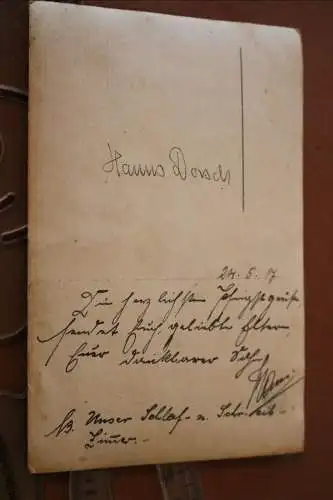 Hanns Dorsch
24. 5. 17
Die herzlichsten Pfingstgrüße
sendet Euch, geliebte Eltern
Euer dankbarer Sohn
Hans
NB. Unser Schlaf- u. Schreib-
Zimmer. -